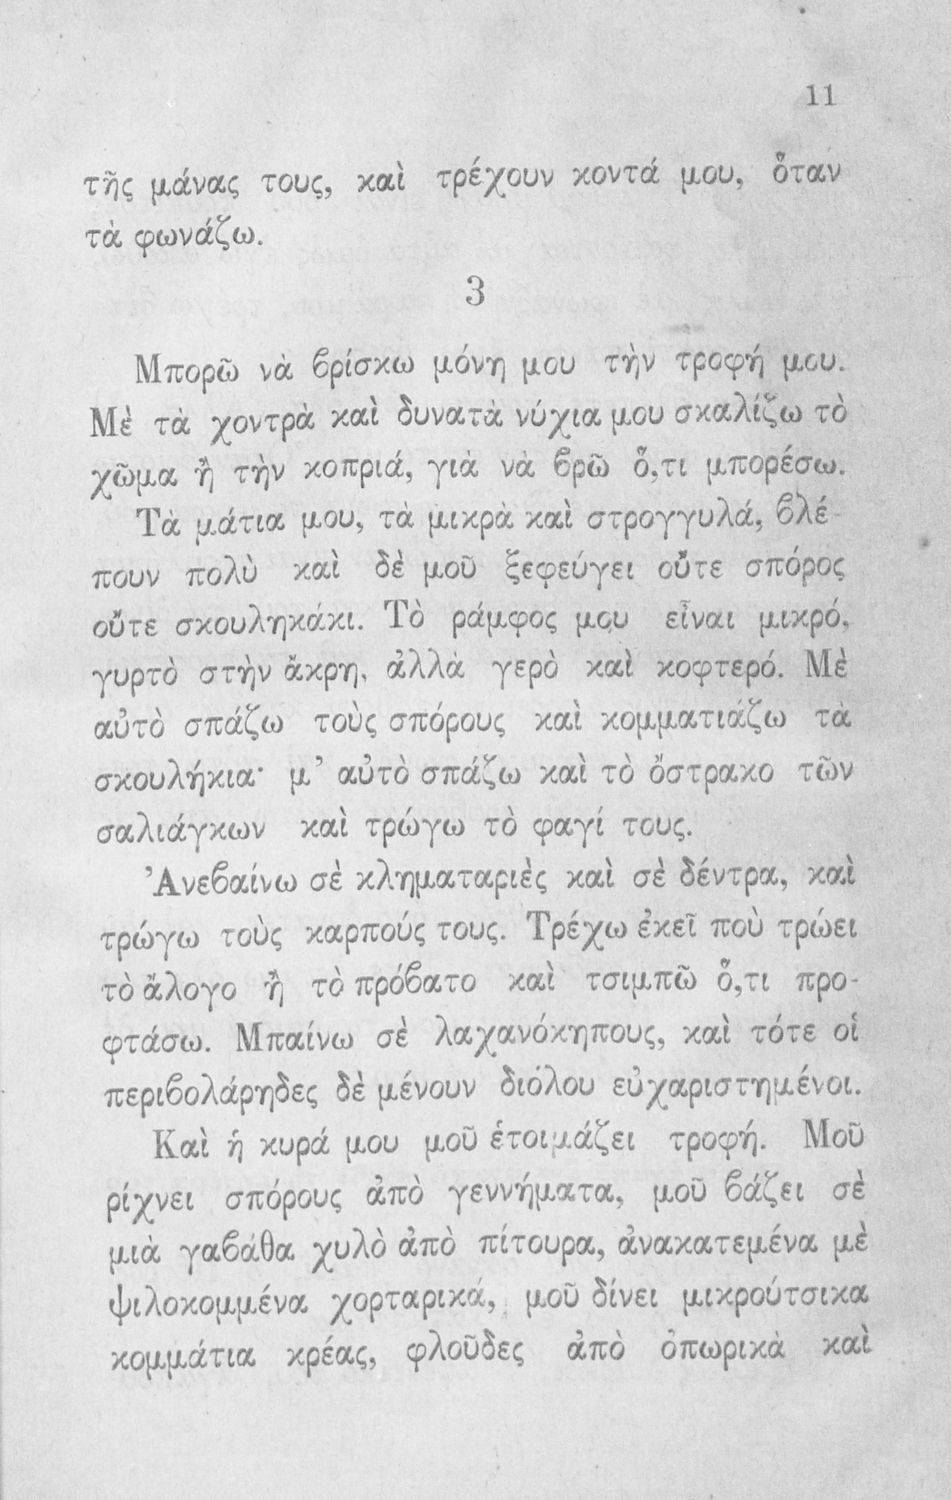 11
τῆς μάνας τους, καὶ τρέχουν κοντά μου, ὅταν
τὰ φωνάζω.
3
Μπορῶ νὰ ϐρίσκω μόνη μου τὴν τροφή μου.
Μὲ τὰ χοντρὰ καὶ δυνατὰ νύχια μου σκαλίζω τὸ
χῶμα ἢ τὴν κοπριά, γιὰ νὰ ϐρῶ ὅ,τι μπορέσω.
Τὰ μάτια μου, τὰ μικρὰ καὶ στρογγυλά, ϐλέ-
πουν πολὺ καὶ δὲ μοῦ ξεφεύγει οὔτε σπόρος
οὔτε σκουληκάκι. Τὸ ράμφος μου εἶναι μικρό,
γυρτὸ στὴν ἄκρη, ἀλλὰ γερὸ καὶ κοφτερό. Μὲ
αὐτὸ σπάζω τοὺς σπόρους καὶ κομματιάζω τὰ
σκουλήκια· μ’ αὐτὸ σπάζω καὶ τὸ ὄστρακο τῶν
σαλιάγκων καὶ τρώγω τὸ φαγί τους.
Ἀνεϐαίνω σὲ κληματαριὲς καὶ σὲ δέντρα, καὶ
τρώγω τοὺς καρπούς τους. Τρέχω ἐκεῖ ποὺ τρώει
τὸ ἄλογο ἢ τὸ πρόϐατο καὶ τσιμπῶ ὅ,τι προ-
φτάσω. Μπαίνω σὲ λαχανόκηπους, καὶ τότε οἱ
περιϐολάρηδες δὲ μένουν διόλου εὐχαριστημένοι.
Καὶ ἡ κυρά μου μοῦ ἑτοιμάζει τροφή. Μοῦ
ρίχνει σπόρους ἀπὸ γεννήματα, μοῦ ϐάζει σὲ
μιὰ γαϐάθα χυλὸ ἀπὸ πίτουρα, ἀνακατεμένα μὲ
ψιλοκομμένα χορταρικά, μοῦ δίνει μικρούτσικα
κομμάτια κρέας, φλοῦδες ἀπὸ ὀπωρικὰ καὶ